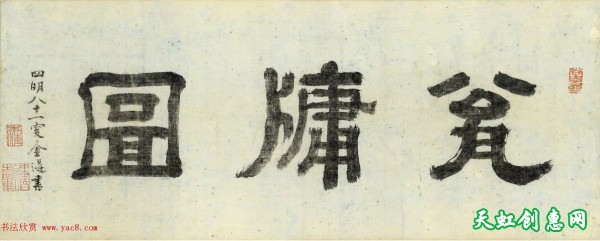 瓮牖圖
四明八十一叟金湜書
书法欣赏 www.yac8.com
天虹创惠网